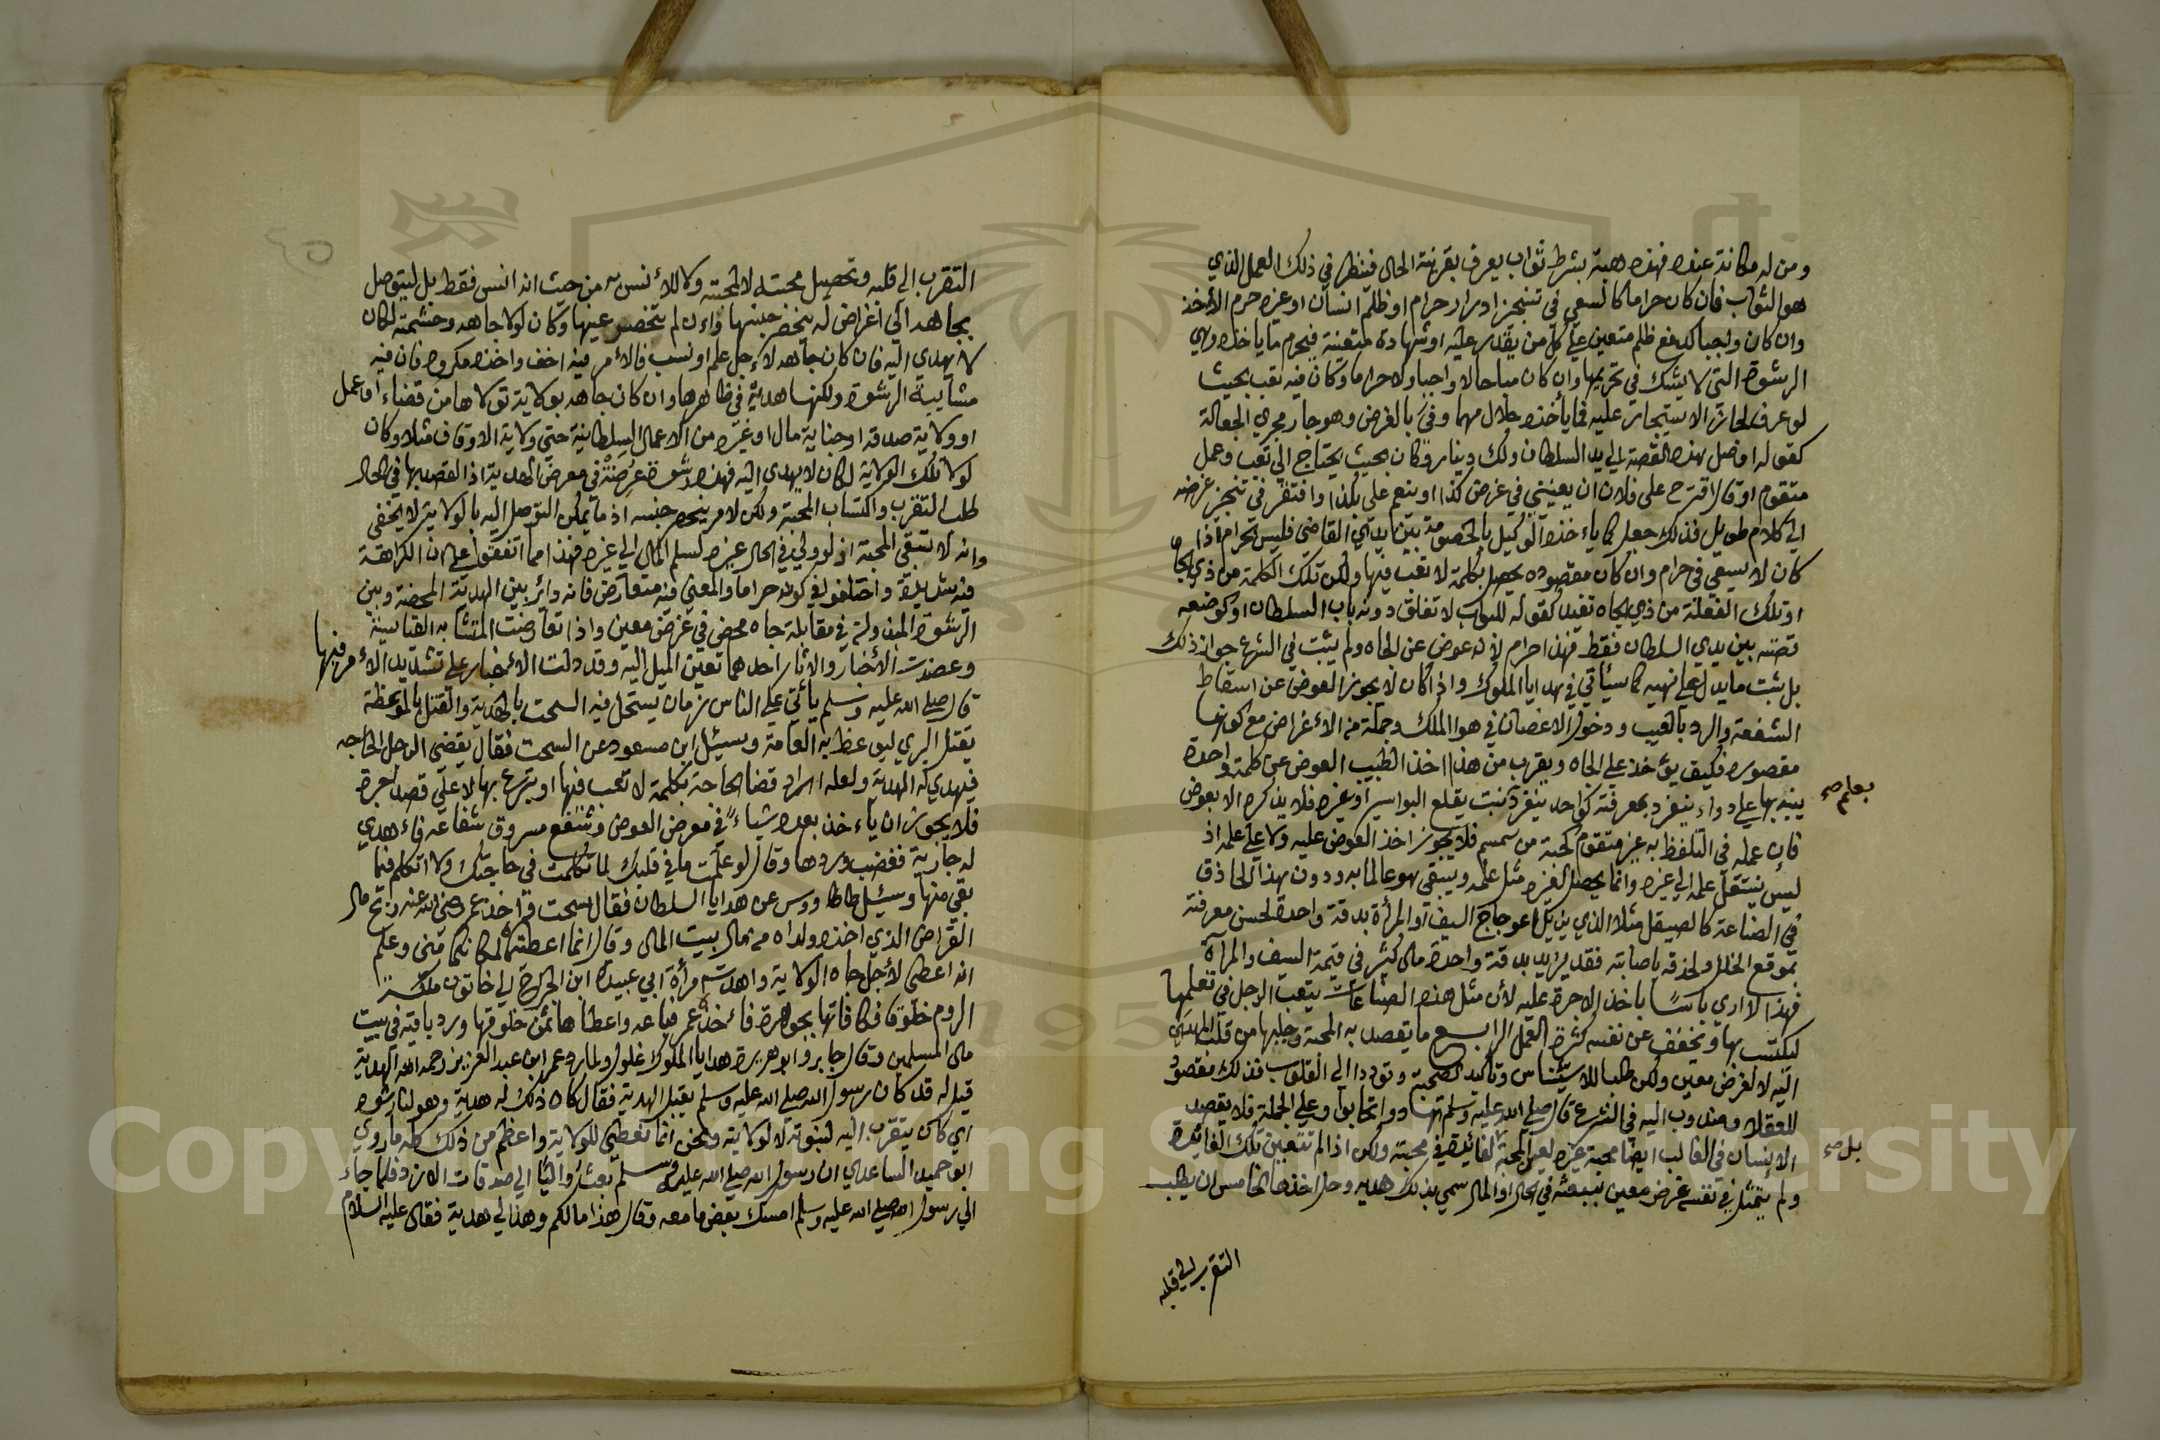 ومن له مكانة عنده فهذه هبة بشرط ثواب يعرف بقرينة الحال فينظر في ذلك العمل الذي
هو الثواب فان كان حراما كالسعي في تنجيز ادرار حرام او ظلم انسان او غيره حرم الأخذ
وان كان واجبا كدفع ظلم متعين على كل من يقدر عليه او شهادة متعينة فيحرم ما ياخذه وهي
الرشوة التي لا يشك في تحريمها وان كان مباحا لا واجبا ولا حراما وكان فيه تعب بحيث
لو عرف لجاز الاستيجار عليه فما يأخذه حلال مهما وفى بالغرض وهو جار مجري الجعالة
كقوله اوصل هذه القصة الى يد السلطان ولك دينار وكان بحيث يحتاج الي تعب وعمل
متقوم او قال اقترح على فلان ان يعينني في غرض كذا او ينعم علي بكذا وافتقر في تنجز غرضه
الي كلام طويل فذلك جعل كما يأخذه الوكيل بالخصومة بين يدي القاضي فليس بحرام اذا
كان لا يسعي في حرام وان كان مقصوده يحصل بكلمة لا تعب فيها ولكن تلك الكلمة من ذي الجاه
او تلك الفعلة من ذي الجاه تفيد كقوله للبواب لا تغلق دونه باب السلطان او كوضعه
قصته بين يدي السلطان فقط فهذا حرام لانه عوض عن الجاه ولم يثبت في الشرع جواز ذلك
بل ثبت ما يدل على نهيه كما سيأتي في هدايا الملوك واذا كان لا يجوز العوض عن اسقاط
الشفعة والرد بالعيب ودخول الاغصان في هوا الملك وجملة من الأغراض مع كونها
مقصوده فكيف يؤخذ علي الجاه ويقرب من هذا اخذ الطبيب العوض عن كلمة واحدة
ينبه بها على دواء ينفرد بمعرفته كواحد ينفرد بنبت يقلع البواسير او غيره فلا يذكره الا بعوض
بعلم صح
فان عمله في التلفظ به غير متقوم كحبة من سمسم فلا يجوز اخذ العوض عليه ولا علي علمه اذ
ليس ينتقل علمه الي غيره وانما يحصل لغيره مثل علمه ويبقي هو عالما به ودون هذا الحاذق
في الصناعة كالصيقل مثلا الذي يزيل اعوجاج السيف او المرأة بدقة واحدة لحسن معرفته
بموقع الخلل ولحذقه باصابته فقد يزيد بدقة واحدة مال كثير في قيمة السيف والمرآة
فهذا لا اري باسًا باخذ الاجرة عليه لأن مثل هذه الصناعات يتعب الرجل في تعلمها
ليكتسب بها ويخفف عن نفسه كثرة العمل الرابع ما يقصد به المحبة وجلبها من قلب المهدي
اليه لا لغرض معين ولكن طلبا للاستئناس وتأكيد للصحبة وتوددا الي القلوب فذلك مقصود
للعقلا ومندوب اليه في الشرع قال صلي الله عليه وسلم تهادوا تحابوا وعلي الجملة فلا يقصد
الانسان في الغالب ايضا محبة غيره لعين المحبة لفائدة في محبته ولكن اذا لم تتعين تلك الفائدة
بل صح
ولم يتمثل في نفسه غرض معين يبعثه في الحال او المال سمي بذلك هديه وحل اخذها الخامس ان يطلب
التقرب الي قلبه
التقرب الي قلبه وتحصيل محبته لا لمحبته ولا للأنس به من حيث انه انس فقط بل ليتوصل
بجاهه الي أغراض له ينحصر جنسها وإن لم ينحصر عينها وكان لولا جاهه وحشمته لكان
لا يهدي اليه فان كان جاهه لأجل علم او نسب فالأمر فيه اخف واخذه مكروه فان فيه
مشابهة الرشوة ولكنها هدية في ظاهرها وان كان جاهه بولاية تولاها من قضاء او عمل
او ولاية صدقه او جباية مال او غيره من الاعمال السلطانية حتي ولاية الاوقاف مثلا وكان
لولا تلك الولاية لكان لا يهدي اليه فهذه رشوة عرضت في معرض الهدية اذ القصد بها في الحال
طلب التقرب واكتساب المحبة ولكن لامر ينحصر جنسه اذ ما يمكن التوصل اليه بالولاية لا يخفي
وانه لا تبقي المحبة اذ لو ولي في الحال غيره لسلم المال الي غيره فهذا مما اتفقوا على ان الكراهة
فيه شديدة واختلفوا في كونه حراما والمعني فيه متعارض فانه دائر بين الهدية المحضة وبين
الرشوة المبذولة في مقابلة جاه محض في غرض معين واذا تعارضت المشابهة القياسية
وعضدت الأخبار والاثار احدهما تعين الميل اليه وقد دلت الأخبار على تشديد الأمر فيها
قال صلى الله عليه وسلم يأتي علي الناس زمان يستحل فيه السحت بالهدية والقتل بالموعظة
يقتل البري ليوعظ به العامة وسئل ابن مسعود عن السحت فقال يقضي الرجل الحاجه
فيهدي له الهدية ولعله اراد قضا الحاجة بكلمة لا تعب فيها او يتبرع بها لا علي قصد اجرة
فلا يجوز ان يأخذ بعده شياءً في معرض العوض وشفع مسروق شفاعه فأهدي
له جارية فغضب وردها وقال لو علمت ما في قلبك لما تكلمت في حاجتك ولا اتكلم فيما
بقي منها وسئل طاووس عن هدايا السلطان فقال سحت واخذ عمر رضي الله عنه ربح مال
القراض الذي اخذه ولداه من مال بيت المال وقال انما اعطيتما لمكانكما مني وعلم
انه اعطي لأجل جاه الولاية واهدت امرأة ابي عبيدة ابن الجراح الي خاتون ملكة
الروم خلوقا فكافاتها بجوهرة فأخذه عمر فباعه واعطاها ثمن خلوقها ورد باقيه في بيت
مال المسلمين وقال جابر وابو هريرة هدايا الملوك غلول ولما رد عمر ابن عبد العزيز رحمه الله الهدية
قيل له قد كان رسول الله صلي الله عليه وسلم يقبل الهدية فقال كان ذلك له هدية وهو لنا رشوه
اي كان يتقرب اليه لنبوته لا لولايته ونحن انما نعطي للولاية واعظم من ذلك كله ما روي
ابو حميد الساعدي ان رسول الله صلي الله عليه وسلم بعث واليًا الي صدقات الازد فلما جاء
الي رسول الله صلي الله عليه وسلم امسك بعض ما معه وقال هذا مالكم وهذا لي هدية فقال عليه السلام
Copyright © King Saud University
1957